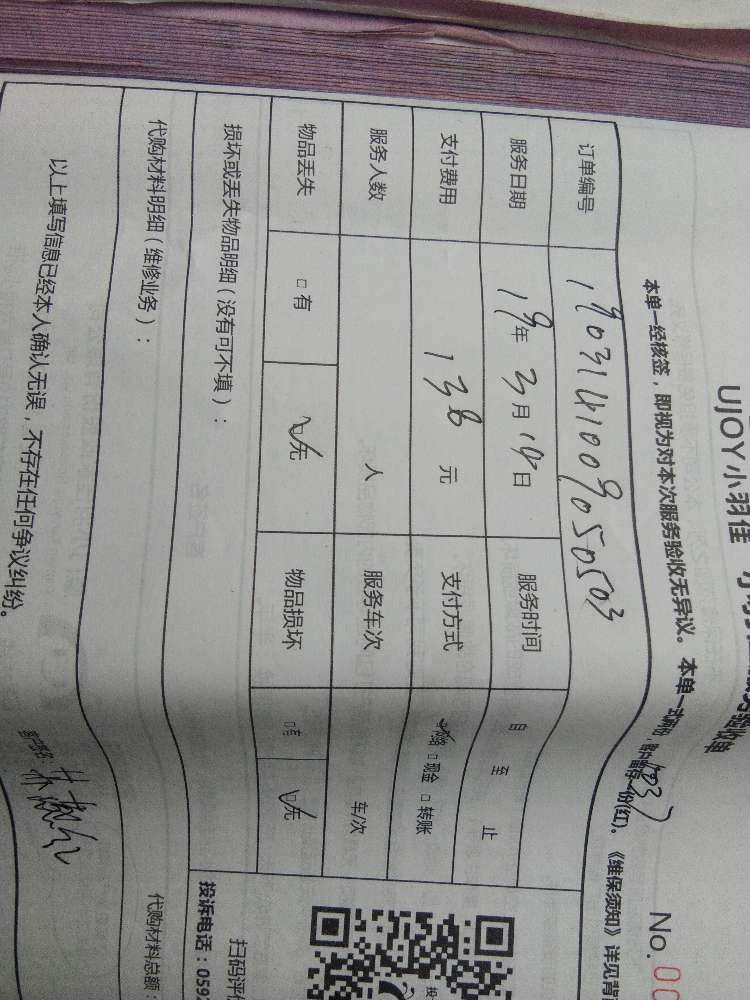 UJOY小羽佳
验收单
No.
本单一经核签，即视为对本次服务验收无异议。本单一式两份，客户留存一份(红)。《维保须知》详见背
订单编号 1903141009050503
服务日期 19年3月14日 服务时间 自 至 止
支付费用 138元 支付方式 □现金 □转账
服务人数 人 服务车次 车/次
物品丢失 □有 ☑无 物品损坏 □有 ☑无
损坏或丢失物品明细（没有可不填）：
投诉电话：059
扫码评
代购材料明细（维修业务）：
代购材料总额：
以上填写信息已经本人确认无误，不存在任何争议纠纷。
客户签名：